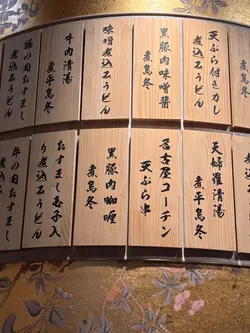 天ぷら付きカレ
黒豚肉味噌醤
煮烏冬
味噌
煮込みうどん
牛肉清湯
煮平烏冬
天婦羅清湯
煮平烏冬
名古屋コーチン
天ぷら串
黒豚肉咖喱
煮烏冬
おすまし玉子入
り煮込みうどん
牛の肉おすまし